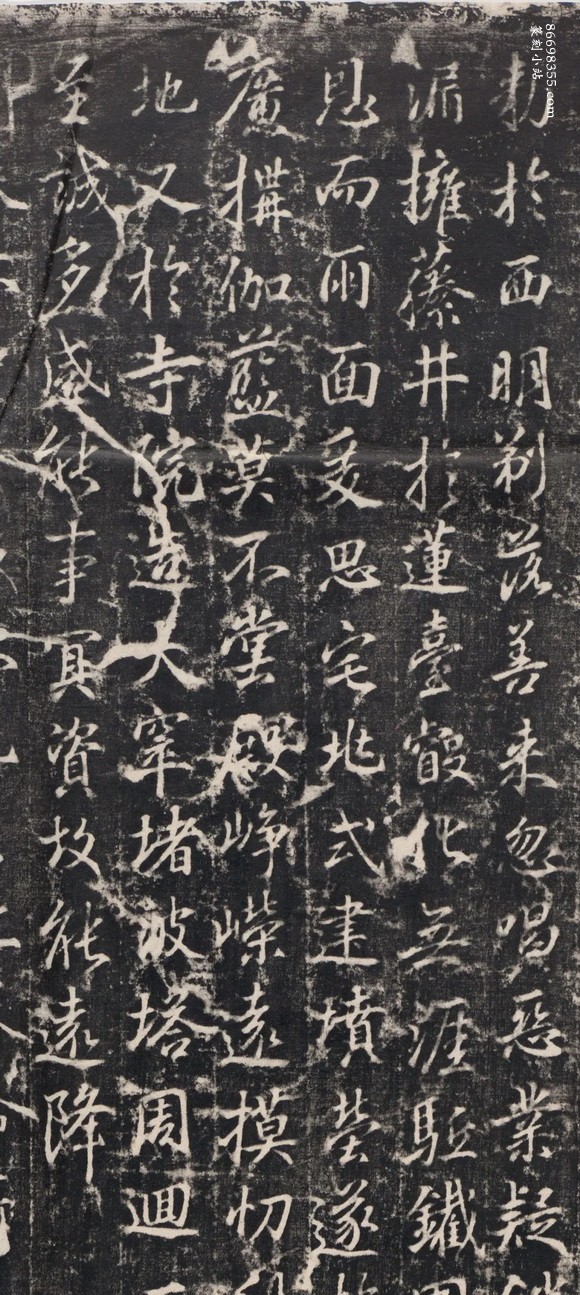 86698355.com
篆刻小站
勅於西明剃落善来忽唱惡業疑
漏擁藤井於蓮臺化無涯駈鐵
恩而雨面爰思宅兆式建墳塋遂
廣搆伽藍莫不堂殿崢嶸遠摸忉
地又於寺院造大窣堵波塔周迴
至誠多感能事冥資故能遠降